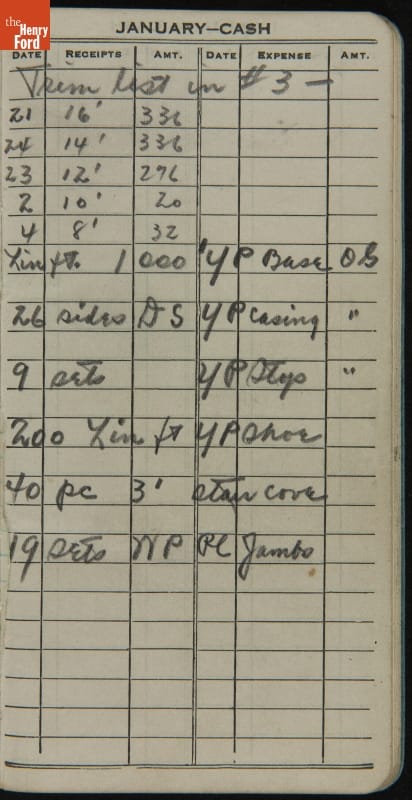 the Henry Ford
JANUARY—CASH
DATE RECEIPTS AMT. DATE EXPENSE AMT.
Trim list in #3 —
21 16' 336
24 14' 336
23 12' 276
2 10' 20
4 8' 32
Lin ft. 1 000 ' YP Base OG
26 sides D S YP casing "
9 sets YP Stps "
200 Lin ft YP Shoe
40 pc 3' stair cove
19 sets WP Pl Jambs